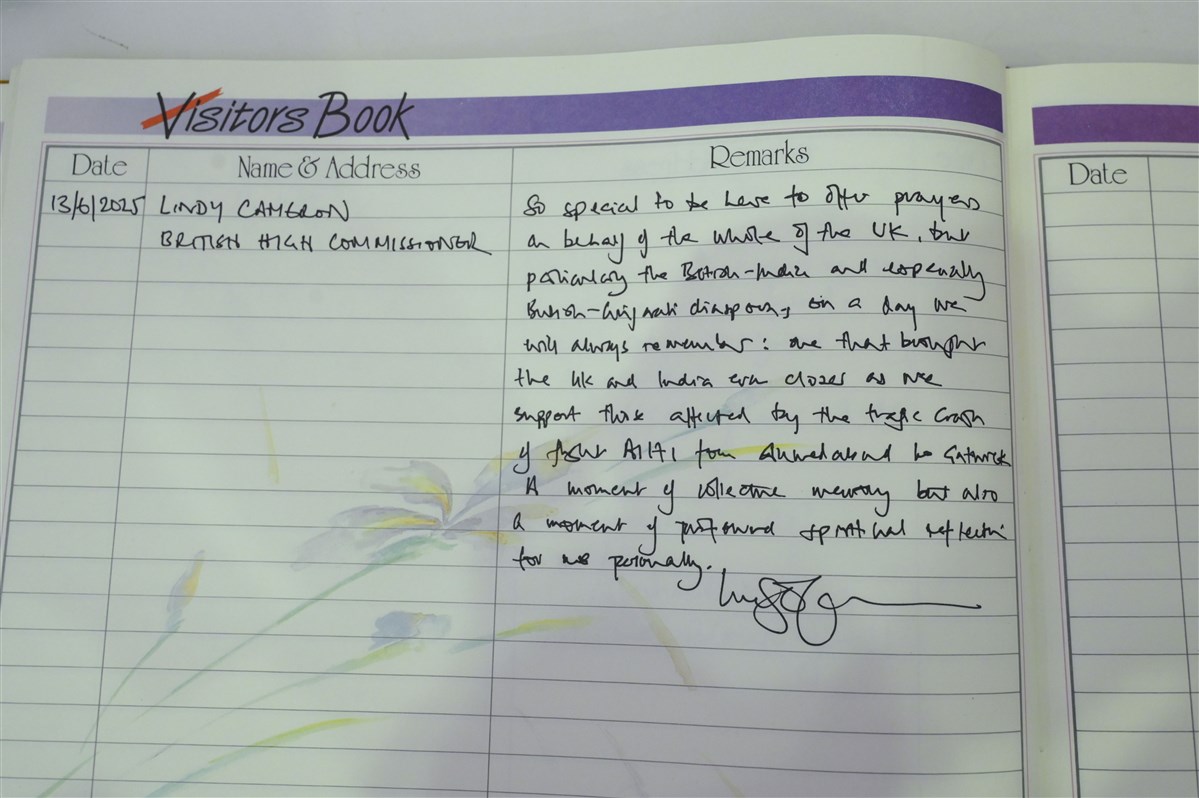 Visitors Book
Date Name & Address Remarks
13/6/2025 LINDY CAMERON
BRITISH HIGH COMMISSIONER
So special to be here to offer prayers
on behalf of the whole of the UK, but
particularly the British-Indian and especially
British-Gujarati diaspora, on a day we
will always remember: one that brought
the UK and India even closer as we
support those affected by the tragic crash
of flight AI171 from Ahmedabad to Gatwick
A moment of collective memory but also
a moment of profound spiritual reflection
for me personally.
Date